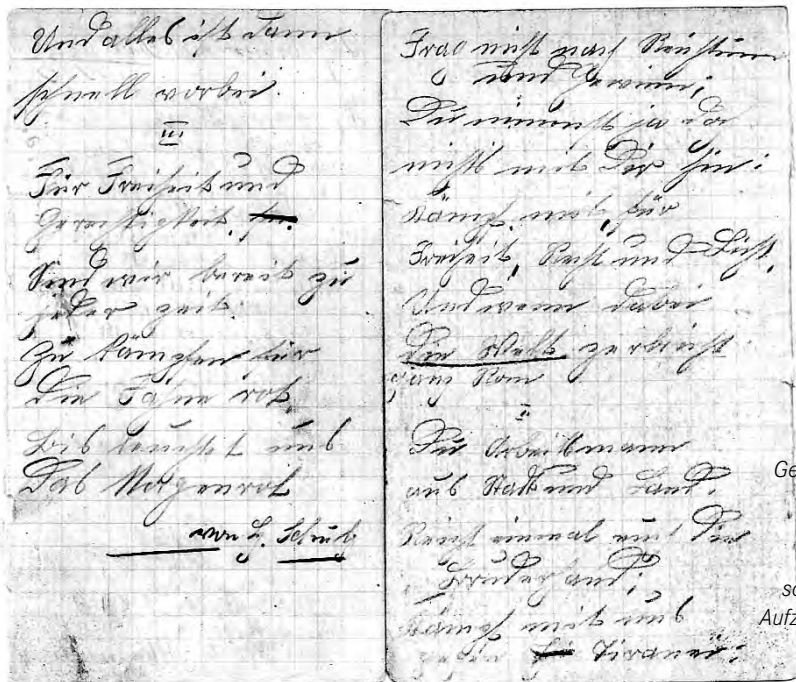 Und alles ist dann
schnell vorbei.
III
Für Freiheit und
Gerechtigkeit,
Sind wir bereit zu
jeder zeit.
Zu kämpfen für
Die Fahne rot,
Bis leuchtet uns
Das Morgenrot
von
Frag nicht nach Reichtum
und Gewinn;
Du nimmst ja doch
nichts mit Dir hin:
Kämpf mit, für
Freiheit, Recht und Licht,
Und wenn dabei
die Welt zerbricht
II
Du Arbeitsmann
aus Stadt und Land.
Reich einmal uns die
Bruderhand;
Kämpf mit uns
gegen Tiranei:
Ge
sc
Aufz